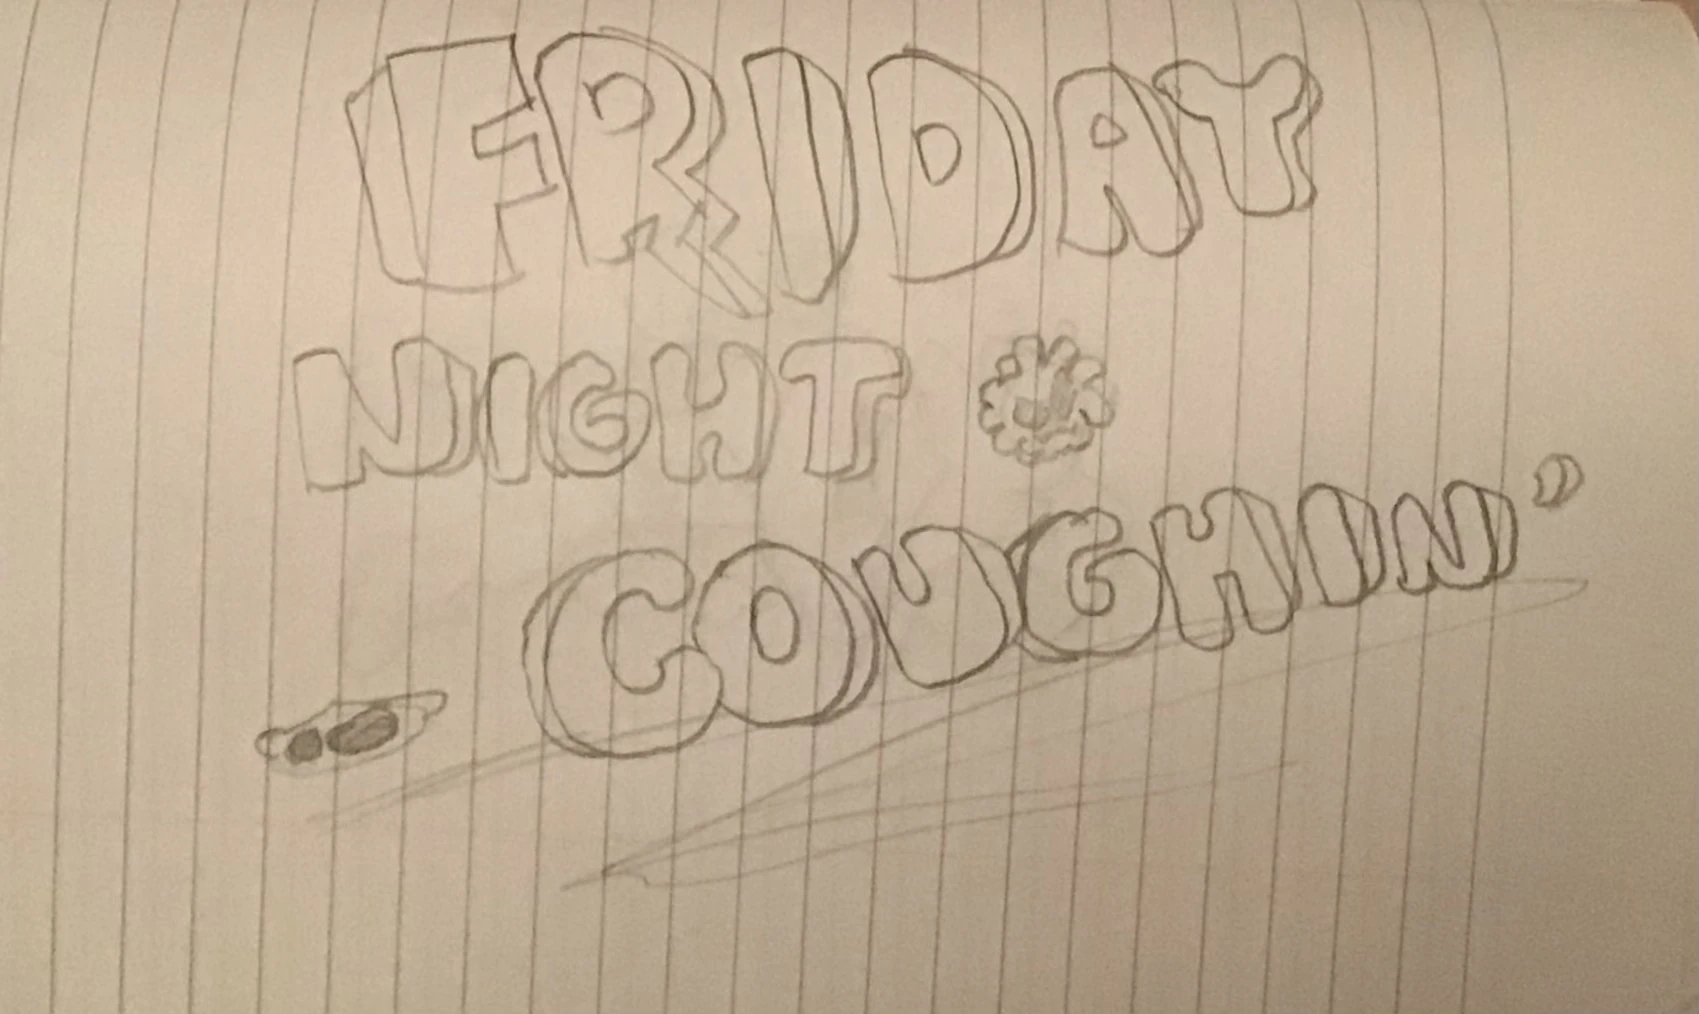 FRIDAY
NIGHT
COUGHIN'